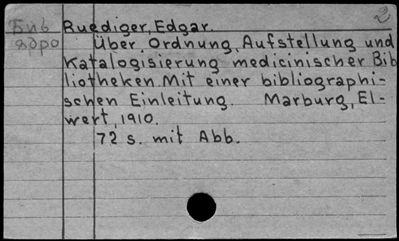 2
Биб Ruediger, Edgar.
ядро Über Ordnung, Aufstellung und
Katalogisierung medicinischer Bib
liotheken. Mit einer bibliographi-
schen Einleitung. Marburg, El-
wert, 1910.
72 s. mit Abb.